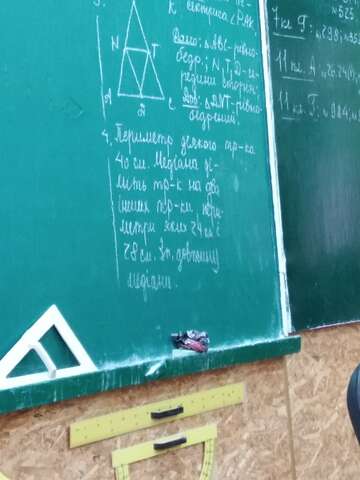 3.
к бісектриса ∠
Дано: △ABC-рівно-
бедр.; N, T, D-се-
N T редини сторін;
Дов: △DNT-рівно-
A 2 C бедрений.
4. Периметр деякого тр-ка
40 см. Медіана ді-
лить тр-к на два
інших тр-ки пери-
метри яких 24 см і
28 см. Зн. довжину
медіани.
525
7 кл Г:
№298;
11 кл. А
11 кл. Г: №984;